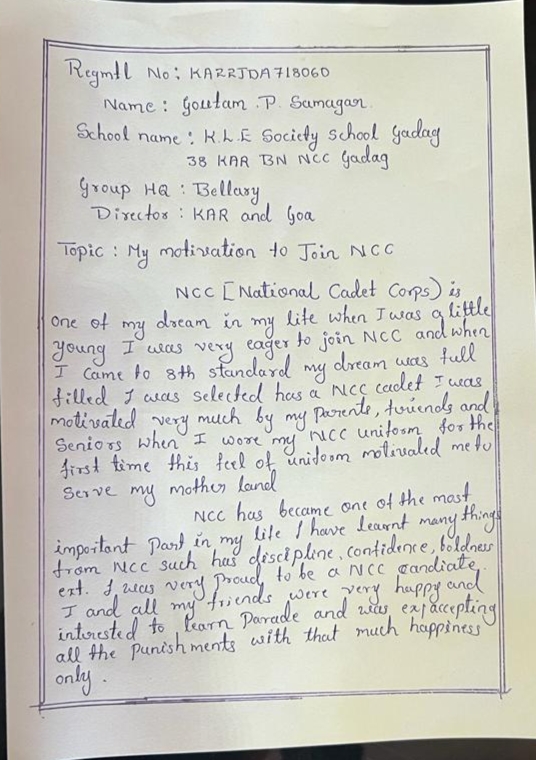 Regmtl No: KARRJDA718060
Name: Goutam .P. Samagar.
School name: K.L.E Society School Gadag
38 KAR BN NCC Gadag
Group HQ : Bellary
Director : KAR and Goa
Topic : My motivation to Join NCC
NCC [National Cadet Corps) is
one of my dream in my life when I was a little
young I was very eager to join NCC and when
I came to 8th standard my dream was full
filled I was selected has a NCC cadet I was
motivated very much by my parents, friends and
Seniors when I wore my NCC uniform for the
first time this feel of uniform motivated me to
serve my mother land
NCC has became one of the most
important part in my life I have learnt many things
from NCC such has discipline, confidence, boldness
ext. I was very proud to be a NCC candiate.
I and all my friends were very happy and
interested to learn Parade and was accepting
all the punishments with that much happiness
only.